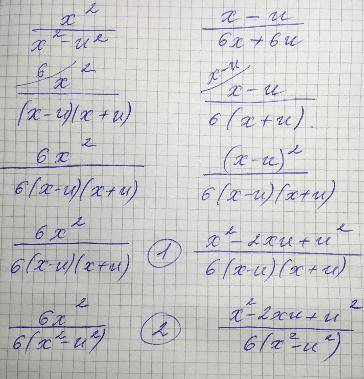 x² / (x² - u²)    (x - u) / (6x + 6u)
⁶⁄ x² / ((x-u)(x+u))    ˣ⁻ᵘ⁄ x - u / (6(x+u)).
6x² / (6(x-u)(x+u))    (x-u)² / (6(x-u)(x+u))
6x² / (6(x-u)(x+u))    ①    (x² - 2xu + u²) / (6(x-u)(x+u))
6x² / (6(x²-u²))    ②    (x² - 2xu + u²) / (6(x²-u²))